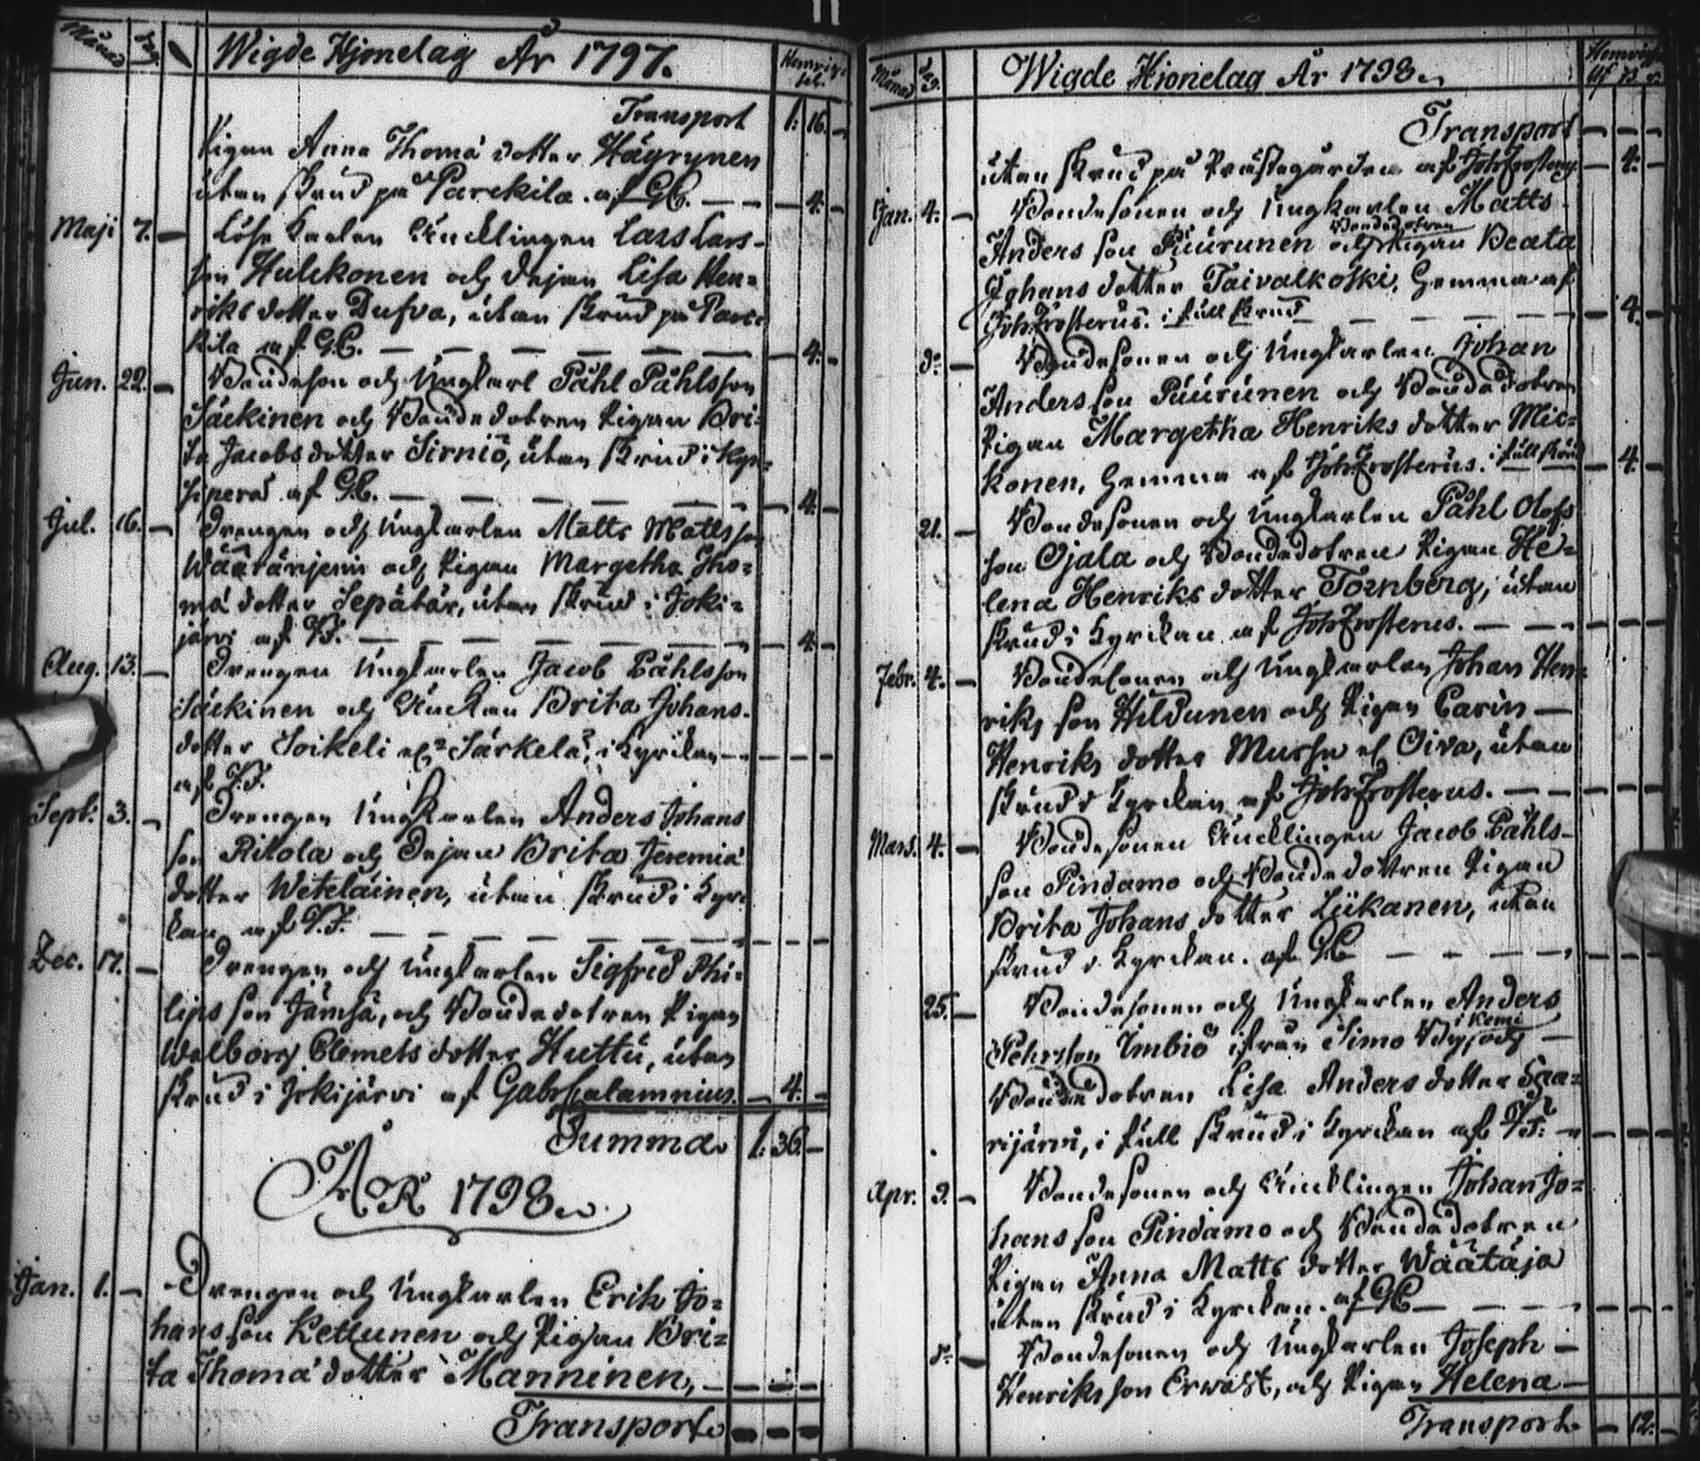 Månad Dag Wigde Hjonelag År 1797. Hemvigs sal.
Transport 1: 16. -
Pigan Anna Thomædotter Häyrynen
utan skrud på Parckila. af GC. - - - 4. -
Maji 7. - Löse karlen Änklingen Lars Lars-
son Hulckonen och Dejan Lisa Hen-
riks dotter Dufva, utan skrud på Parc-
kila af G.C. - - - 4. -
Jun. 22. - Bondeson och Ungkarl Påhl Påhlsson
Säckinen och Bondedotren Pigan Bri-
ta Jacobs dotter Sirniö, utan skrud i
af G.C. - - - 4. -
Jul. 16. - Drengen och Ungkarlen Matts Mattsson
Määränjemi och Pigan Margetha Tho-
mæ dotter Sepätär, utan skrud i Joki-
järvi af - - - 4. -
Aug. 13. - Drengen Ungkarlen Jacob Påhlsson
Säckinen och Änckan Brita Johans-
dotter Soikeli el. Särkelä, i Kyrckan - - - -
af
Sept. 3. - Drengen Ungkarlen Anders Johans
son Ritola och Dejan Brita Jeremiæ
dotter Weteläinen, utan skrud i Kyrc-
kan af - - - - -
Dec. 17. - Drengen och Ungkarlen Sigfrid Phi-
lips son Jämsä, och Bondedotren Pigan
Walborg Clemets dotter Huttu, utan
skrud i Jokijärvi af Gabr Calamnius. - 4. -
Summa 1: 36. -
ÅR 1798.
Jan. 1. - Drengen och Ungkarlen Erik Jo-
hans son Kettunen och Pigan Bri-
ta Thomæ dotter Manninen, - - - -
Transport - - -
Månad Dag. Wigde Hjonelag År 1798. Hemvigs
Transport - - -
utan skrud på Prästegården af Joh Frosterus - 4. -
Jan. 4. - Bondesonen och Ungkarlen Matts
Anders son Puurunen och Bondedotren Pigan Beata
Johans dotter Taivalkoski, Hemma af
Joh Frosterus. i full skrud - - - 4. -
do - Bondesonen och Ungkarlen Johan
Anders son Puurunen och Bondedotren
Pigan Margetha Henriks dotter Mic-
konen, Hemma af Joh Frosterus. i full skrud - 4. -
21. - Bondesonen och Ungkarlen Påhl Olofs
son Ojala och Bondedotren Pigan He-
lena Henriks dotter Tornberg, utan
skrud i Kyrckan af Joh Frosterus. - - - -
Febr. 4. - Bondesonen och Ungkarlen Johan Hen-
riks son Hildunen och Pigan Carin -
Henriks dotter Mursu el Oiva, utan
skrud i Kyrckan af Joh Frosterus. - - - -
Mars. 4. - Bondesonen Äncklingen Jacob Påhls-
son Pindamo och Bondedottren Pigan
Brita Johans dotter Liikanen, utan
skrud i Kyrckan. af GC - - - -
25. - Bondesonen och Ungkarlen Anders
Pehrsson Imbiö ifrån Simo By i Kemi och -
Bondedotren Lisa Anders dotter Saa-
rijärvi, i full skrud i Kyrckan af - - - -
Apr. 9. - Bondesonen och Äncklingen Johan Jo-
hans son Pindamo och Bondedotren
Pigan Anna Matts dotter Määtäjä
utan skrud i Kyrckan. af GC - - - -
do - Bondesonen och Ungkarlen Joseph -
Henriksson Erwast, och Pigan Helena -
Transport - 12. -